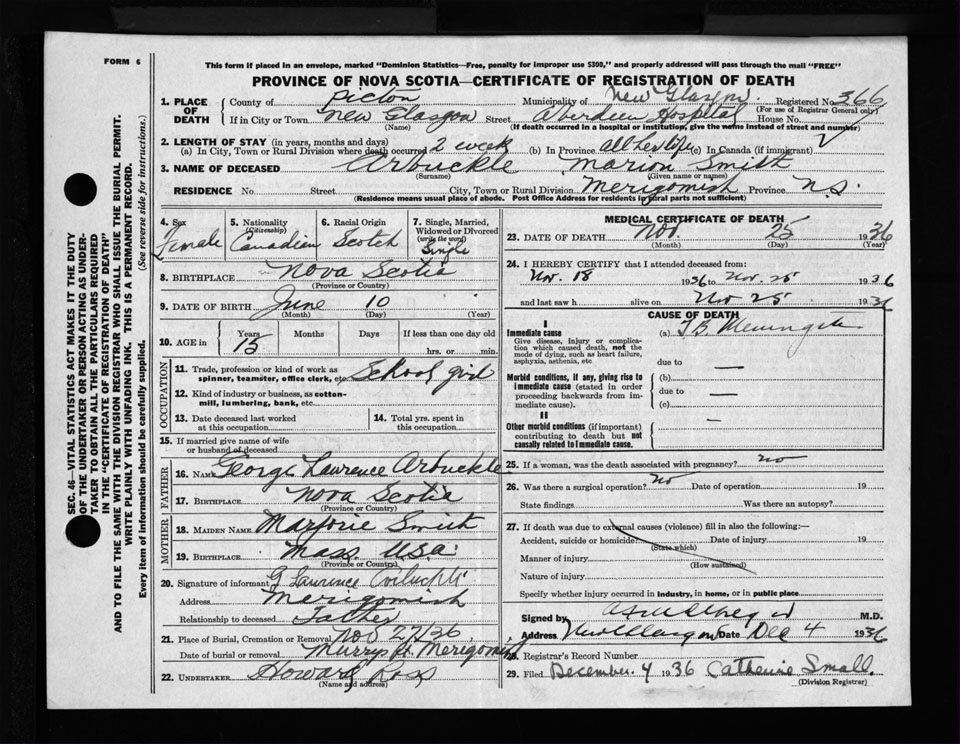 FORM 6
This form if placed in an envelope, marked "Dominion Statistics—Free, penalty for improper use $300," and properly addressed will pass through the mail "FREE"
PROVINCE OF NOVA SCOTIA—CERTIFICATE OF REGISTRATION OF DEATH
1. PLACE OF DEATH County of Picton Municipality of New Glasgow Registered No. 366
(For use of Registrar General only)
If in City or Town New Glasgow Street Aberdeen Hospital House No.
(Name) (If death occurred in a hospital or institution, give the name instead of street and number)
2. LENGTH OF STAY (in years, months and days)
(a) In City, Town or Rural Division where death occurred 2 week (b) In Province all her life (c) In Canada (if immigrant)
3. NAME OF DECEASED Arbuckle Marion Smith
(Surname) (Given name or names)
RESIDENCE No. Street City, Town or Rural Division Merigomish Province N.S.
(Residence means usual place of abode. Post Office Address for residents in rural parts not sufficient)
4. Sex Female
5. Nationality (Citizenship) Canadian
6. Racial Origin Scotch
7. Single, Married, Widowed or Divorced (write the word) Single
8. BIRTHPLACE Nova Scotia
(Province or Country)
9. DATE OF BIRTH June 10
(Month) (Day) (Year)
10. AGE in Years 15 Months Days If less than one day old
hrs. or min.
OCCUPATION
11. Trade, profession or kind of work as spinner, teamster, office clerk, etc. School girl
12. Kind of industry or business, as cotton-mill, lumbering, bank, etc.
13. Date deceased last worked at this occupation
14. Total yrs. spent in this occupation
15. If married give name of wife or husband of deceased
FATHER
16. NAME George Lawrence Arbuckle
17. BIRTHPLACE Nova Scotia
(Province or Country)
MOTHER
18. MAIDEN NAME Marjorie Smith
19. BIRTHPLACE Mass. U.S.A.
(Province or Country)
20. Signature of informant G Lawrence Arbuckle
Address Merigomish
Relationship to deceased Father
21. Place of Burial, Cremation or Removal Nov 27/36
Date of burial or removal Murrys Pt. Merigomish
22. UNDERTAKER Howard Ross
(Name and address)
MEDICAL CERTIFICATE OF DEATH
23. DATE OF DEATH Nov. 25 1936
(Month) (Day) (Year)
24. I HEREBY CERTIFY that I attended deceased from:
Nov. 18 1936 to Nov. 25 1936
and last saw h alive on Nov 25 1936
CAUSE OF DEATH
I
Immediate cause (a) T.B. Meningitis
Give disease, injury or complication which caused death, not the mode of dying, such as heart failure, asphyxia, asthenia, etc
due to —
Morbid conditions, if any, giving rise to immediate cause (stated in order proceeding backwards from immediate cause).
(b)
due to —
(c)
II
Other morbid conditions (if important) contributing to death but not causally related to immediate cause. —
25. If a woman, was the death associated with pregnancy? no
26. Was there a surgical operation? no Date of operation 19
State findings Was there an autopsy?
27. If death was due to external causes (violence) fill in also the following:—
Accident, suicide or homicide Date of injury 19
(State which)
Manner of injury
(How sustained)
Nature of injury
Specify whether injury occurred in industry, in home, or in public place
Signed by M.D.
Address New Glasgow Date Dec 4 1936
28. Registrar's Record Number
29. Filed December. 4 1936 Catherine Small.
(Division Registrar)
SEC. 46—VITAL STATISTICS ACT MAKES IT THE DUTY
OF THE UNDERTAKER OR PERSON ACTING AS UNDER-
TAKER TO OBTAIN ALL THE PARTICULARS REQUIRED
IN THE "CERTIFICATE OF REGISTRATION OF DEATH"
AND TO FILE THE SAME WITH THE DIVISION REGISTRAR WHO SHALL ISSUE THE BURIAL PERMIT.
WRITE PLAINLY WITH UNFADING INK. THIS IS A PERMANENT RECORD.
Every item of information should be carefully supplied. (See reverse side for instructions.)